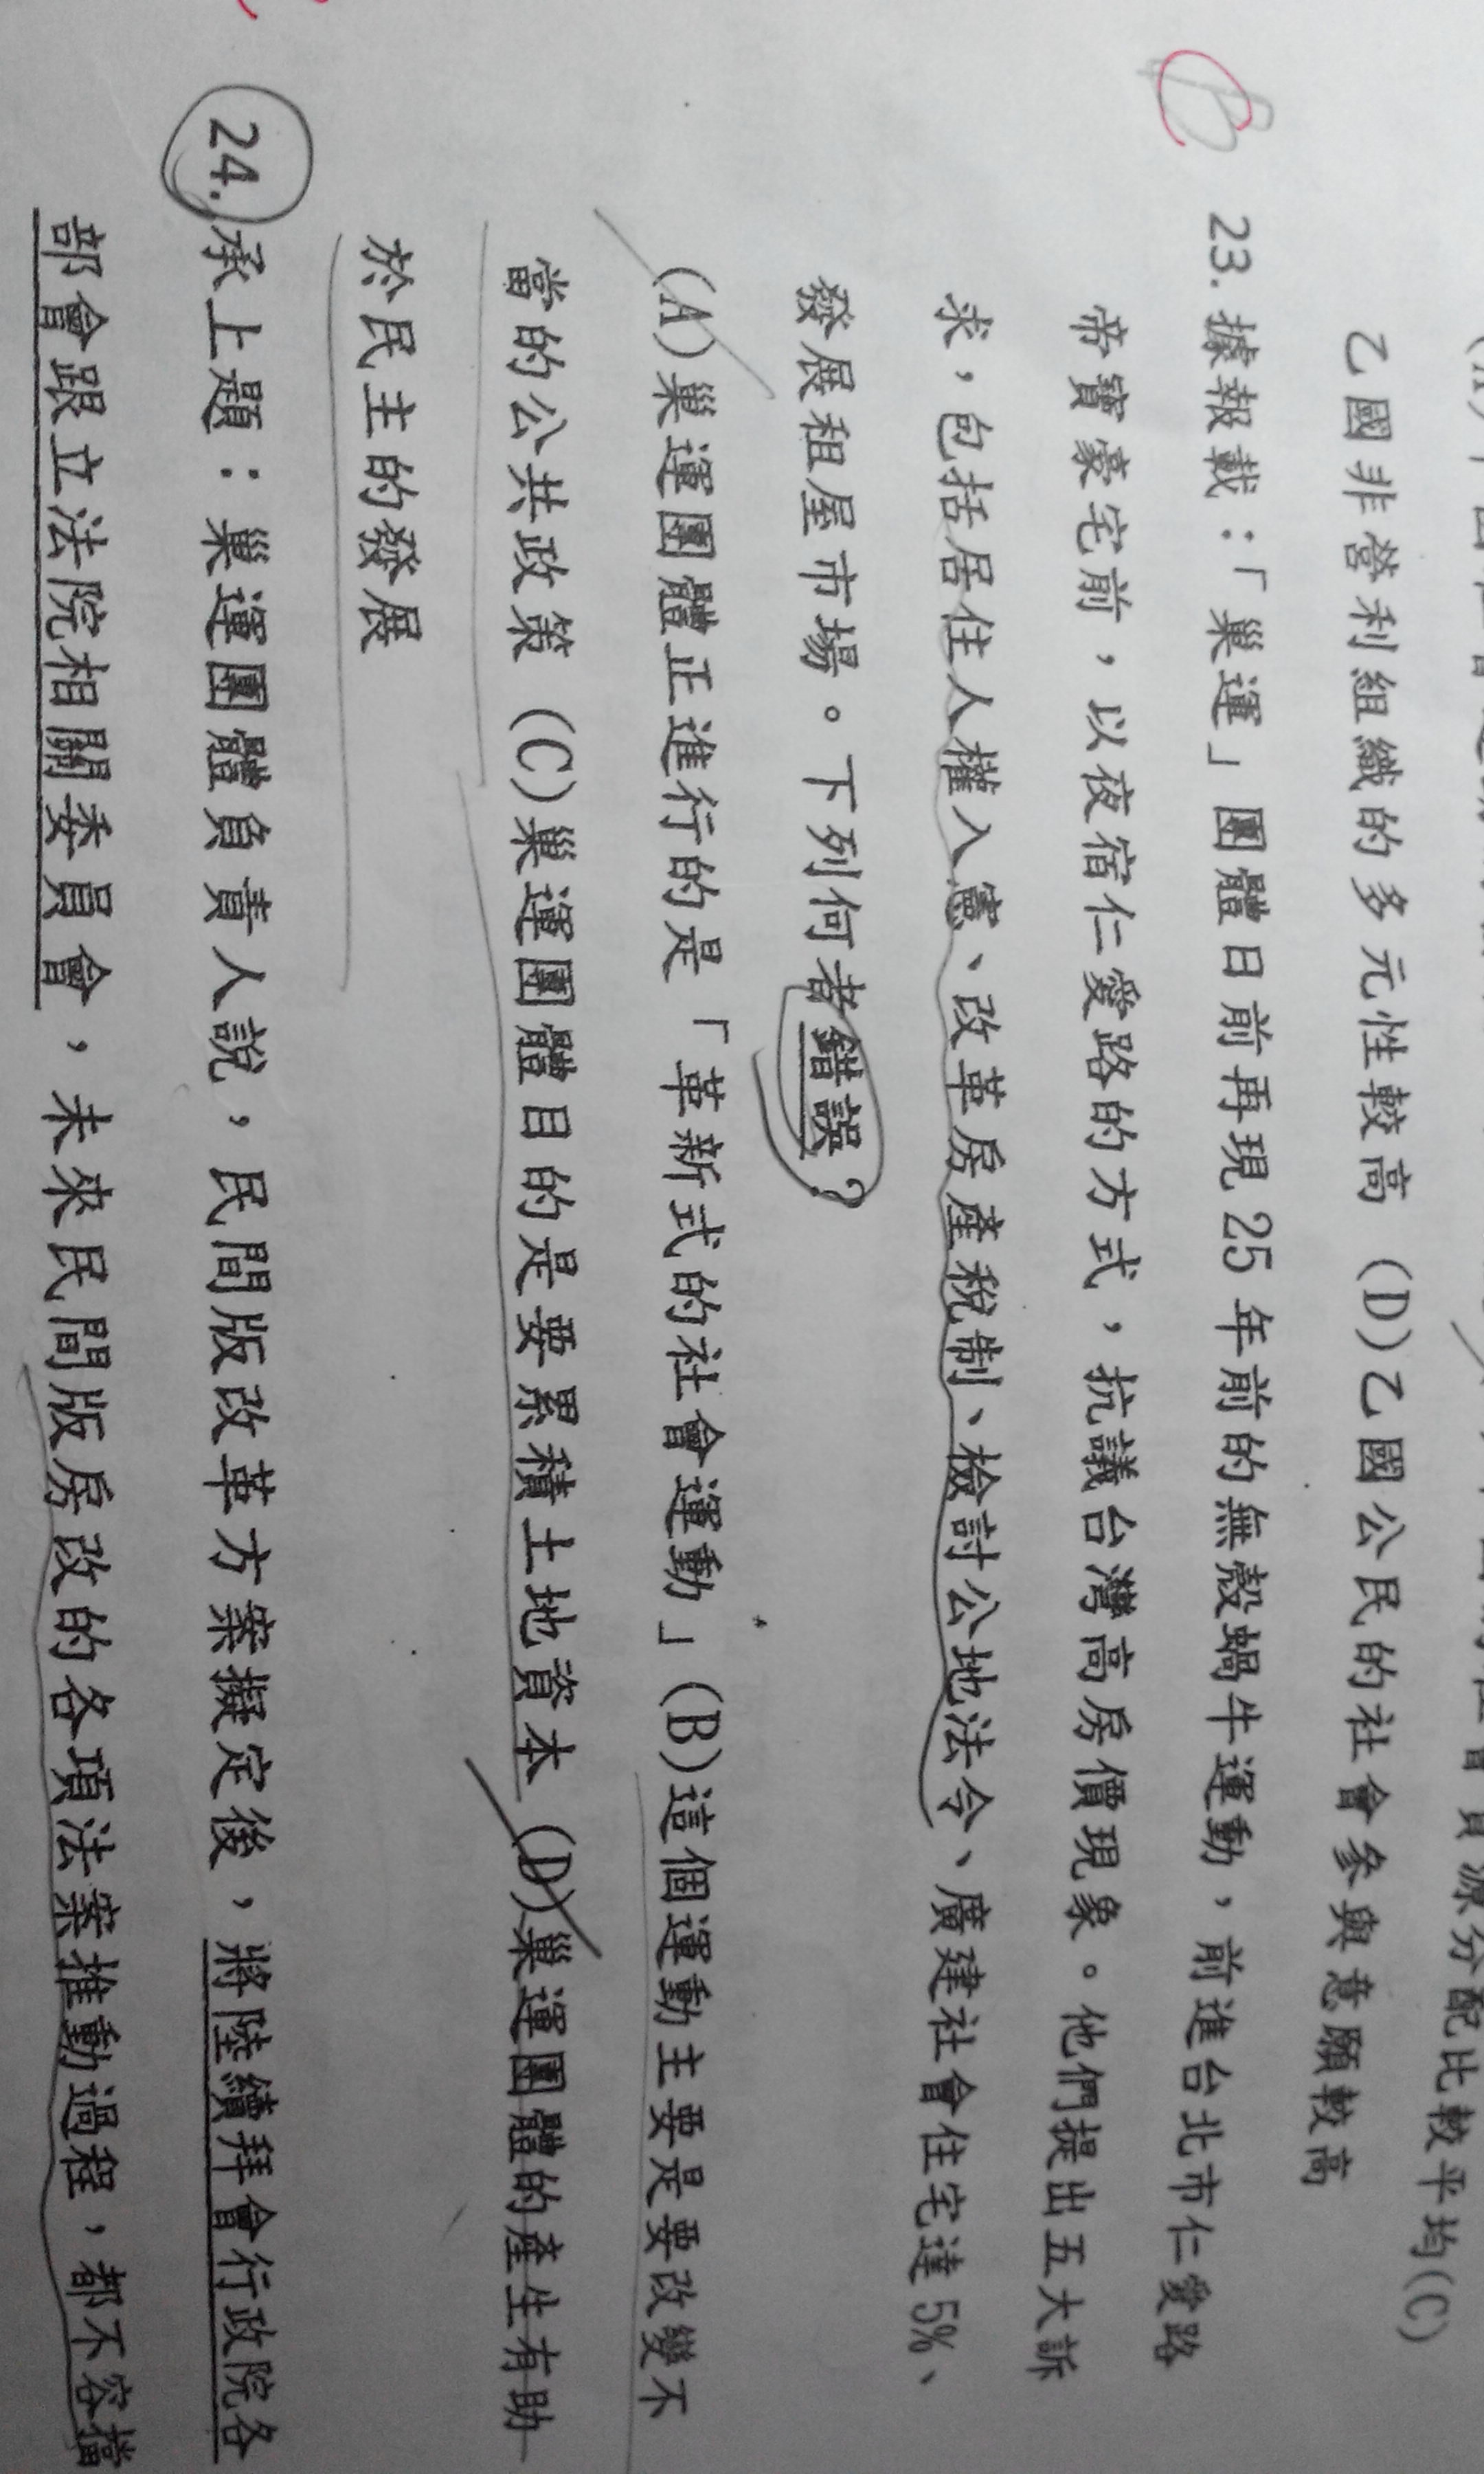 乙國非營利組織的多元性較高 (D)乙國公民的社會參與意願較高
B 23. 據報載：「巢運」團體日前再現25年前的無殼蝸牛運動，前進台北市仁愛路
帝寶豪宅前，以夜宿仁愛路的方式，抗議台灣高房價現象。他們提出五大訴
求，包括居住人權入憲、改革房產稅制、檢討公地法令、廣建社會住宅達5%、
發展租屋市場。下列何者錯誤？
(A)巢運團體正進行的是「革新式的社會運動」(B)這個運動主要是要改變不
當的公共政策 (C)巢運團體目的是要累積土地資本 (D)巢運團體的產生有助
於民主的發展
24. 承上題：巢運團體負責人說，民間版改革方案擬定後，將陸續拜會行政院各
部會跟立法院相關委員會，未來民間版房改的各項法案推動過程，都不容擋